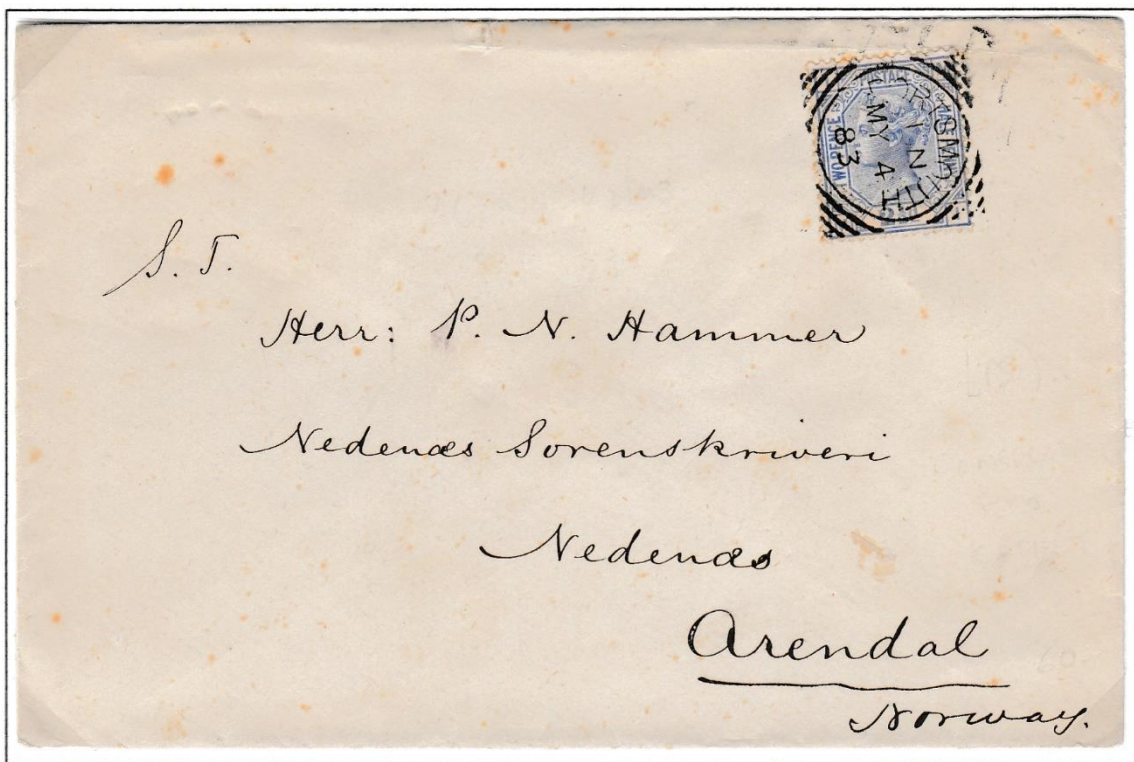 POSTAGE
PORTSMOUTH
N
MY 4
83
S. T.
Herr: P. N. Hammer
Nedenæs Sorenskriveri
Nedenæs
Arendal
Norway.
60